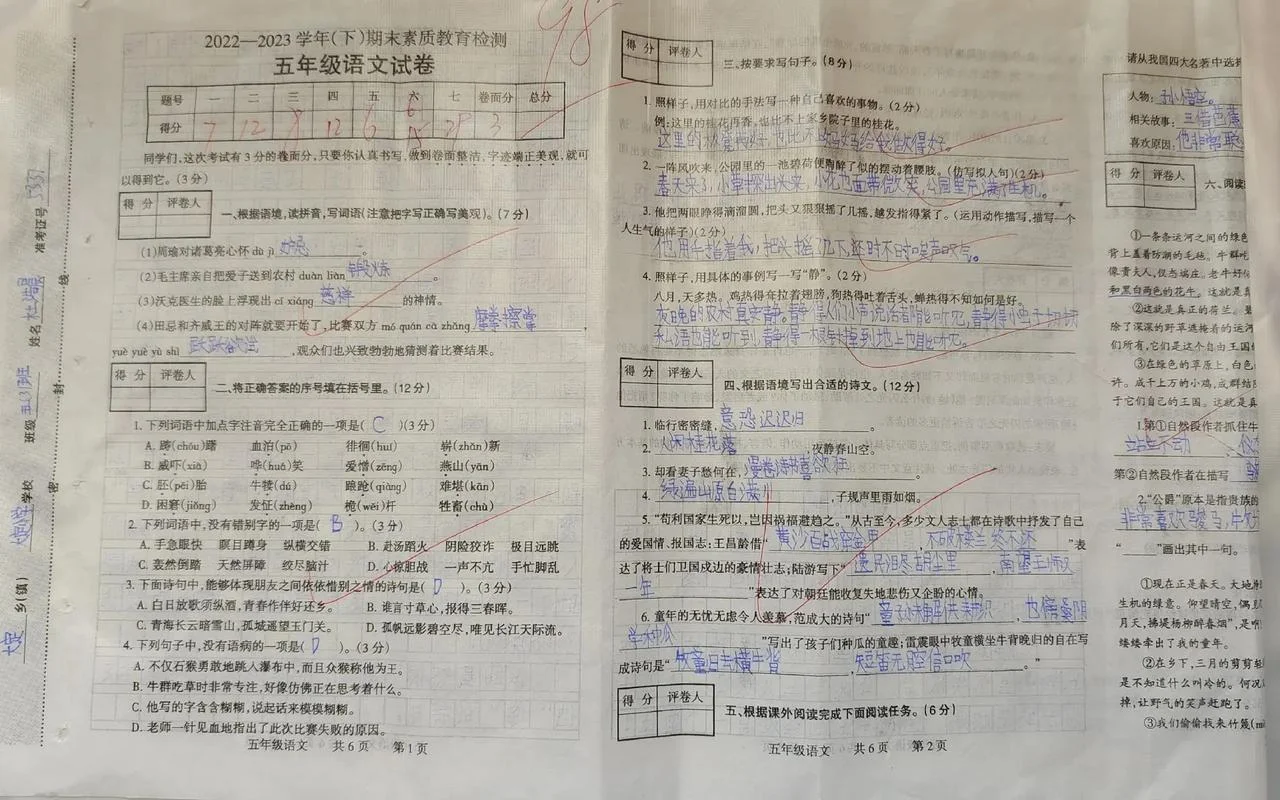 98
2022—2023学年(下)期末素质教育检测
五年级语文试卷
题号 一 二 三 四 五 六 七 卷面分 总分
得分 7 12 8 12 6 3
同学们,这次考试有3分的卷面分,只要你认真书写,做到卷面整洁,字迹端正美观,就可
以得到它。(3分)
得分 评卷人
一、根据语境,读拼音,写词语(注意把字写正确写美观)。(7分)
(1)周瑜对诸葛亮心怀 dù jì 妒忌 。
(2)毛主席亲自把爱子送到农村 duàn liàn 锻炼 。
(3)沃克医生的脸上浮现出 cí xiáng 慈祥 的神情。
(4)田忌和齐威王的对阵就要开始了,比赛双方 mó quán cā zhǎng 摩拳擦掌
yuè yuè yù shì 跃跃欲试 ,观众们也兴致勃勃地猜测着比赛结果。
得分 评卷人
二、将正确答案的序号填在括号里。(12分)
1. 下列词语中加点字注音完全正确的一项是( C )(3分)
A. 踌(chóu)躇 血泊(pō) 徘徊(huí) 崭(zhǎn)新
B. 威吓(xià) 哗(huá)笑 爱憎(zēng) 燕山(yān)
C. 胚(pēi)胎 牛犊(dú) 踉跄(qiàng) 难堪(kān)
D. 困窘(jiǒng) 发怔(zhèng) 桅(wéi)杆 牲畜(chù)
2. 下列词语中,没有错别字的一项是( B )。(3分)
A. 手急眼快 瞑目蹲身 纵横交错 B. 赴汤蹈火 阴险狡诈 极目远眺
C. 轰然倒踏 天然屏障 绞尽脑汁 D. 心惊胆战 一声不亢 手忙脚乱
3. 下面诗句中,能够体现朋友之间依依惜别之情的诗句是( D )。(3分)
A. 白日放歌须纵酒,青春作伴好还乡。 B. 谁言寸草心,报得三春晖。
C. 青海长云暗雪山,孤城遥望玉门关。 D. 孤帆远影碧空尽,唯见长江天际流。
4. 下列句子中,没有语病的一项是( D )。(3分)
A. 不仅石猴勇敢地跳入瀑布中,而且众猴称他为王。
B. 牛群吃草时非常专注,好像仿佛正在思考着什么。
C. 他写的字含含糊糊,说起话来模模糊糊。
D. 老师一针见血地指出了此次比赛失败的原因。
五年级语文 共6页 第1页
准考证号
姓名
班级 五(3)班
学校
乡(镇)
线
封
密
得分 评卷人
三、按要求写句子。(8分)
1. 照样子,用对比的手法写一种自己喜欢的事物。(2分)
例:这里的桂花再香,也比不上家乡院子里的桂花。
2. 一阵风吹来,公园里的一池碧荷便陶醉了似的摆动着腰肢。(仿写拟人句)(2分)
春天来了,小草探出头来,小花乃面带微笑,公园里充满了生机。
3. 他把两眼睁得滴溜圆,把头又狠狠摇了几摇,越发指得紧了。(运用动作描写,描写一个
人生气的样子)(2分)
他用手指着我,把头摇了几下,还时不时唉声叹气。
4. 照样子,用具体的事例写一写“静”。(2分)
八月,天多热。鸡热得耷拉着翅膀,狗热得吐着舌头,蝉热得不知如何是好。
夜晚的农村真安静,静得人们小声说话都能听见,静得小虫子切切
私语也能听到,静得一根针掉到地上也能听见。
得分 评卷人
四、根据语境写出合适的诗文。(12分)
1. 临行密密缝, 意恐迟迟归 。
2. 人闲桂花落 ,夜静春山空。
3. 却看妻子愁何在, 漫卷诗书喜欲狂 。
4. 绿遍山原白满川 ,子规声里雨如烟。
5. “苟利国家生死以,岂因祸福避趋之。”从古至今,多少文人志士都在诗歌中抒发了自己
的爱国情、报国志:王昌龄借“ 黄沙百战穿金甲 , 不破楼兰终不还 ”表
达了将士们卫国戍边的豪情壮志;陆游写下“ 遗民泪尽胡尘里 , 南望王师又
一年 ”表达了对朝廷能收复失地悲伤又企盼的心情。
6. 童年的无忧无虑令人羡慕,范成大的诗句“ 童孙未解供耕织 , 也傍桑阴
学种瓜 ”写出了孩子们种瓜的童趣;雷震眼中牧童横坐牛背晚归的自在写
成诗句是“ 牧童归去横牛背 , 短笛无腔信口吹 。”
得分 评卷人
五、根据课外阅读完成下面阅读任务。(6分)
五年级语文 共6页 第2页
请从我国四大名著中选择
人物: 孙悟空。
相关故事: 三借芭蕉
喜欢原因: 他非常聪
得分 评卷人
六、阅读
①一条条运河之间的绿色
背上盖着防潮的毛毡。牛群吃
像贵夫人,仪态端庄。老牛好似
和黑白两色的花牛。这就是真
②这就是真正的荷兰。碧
除了深深的野草遮掩着的运河
们所有,它们是这个自由王国
③在绿色的草原上,白色
许。成千上万的小鸡,成群结队
于它们自己的王国。这就是真
1. 第①自然段作者抓住牛
第②自然段作者在描写
2. “公爵”原本是指贵族的
非常喜欢骏马,
“ ”画出其中一句。
①现在正是春天。大地渐
生机的绿意。仰望晴空,偶见
月天,拂堤杨柳醉春烟”,是啊
缕缕牵出了我的童年。
②在乡下,三月的剪剪轻
是不知道什么叫冷的。何况
掉,让野气的笑声赶跑了。
③我们偷偷找来竹篾